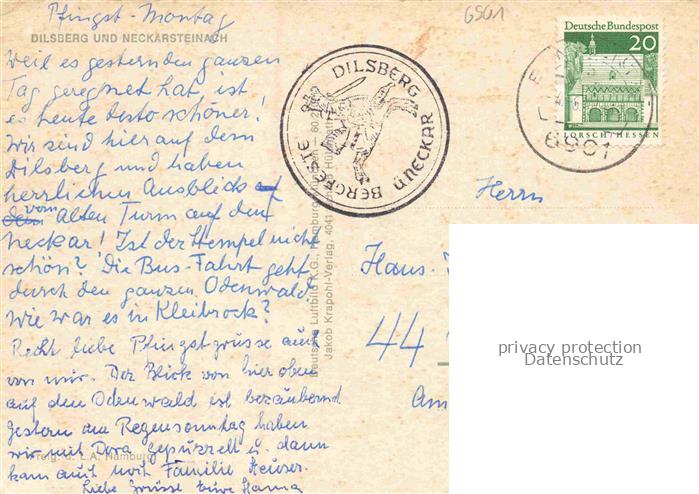 Pfingst-Montag
DILSBERG UND NECKARSTEINACH
Weil es gestern den ganzen
Tag geregnet hat, ist
es heute desto schöner!
Wir sind hier auf dem
Dilsberg und haben
herrlichen Ausblick
vom Alten Turm auf den
Neckar! Ist der Stempel nicht
schön? Die Bus-Fahrt geht
durch den ganzen Odenwald.
Wie war es in Kleibrock?
Recht liebe Pfingstgrüsse auch
von mir. Der Blick von hier oben
auf den Odenwald ist bezaubernd
Gestern am Regensonntag haben
wir mit Dora gepuzzelt u. dann
kam auch noch Familie Heuser.
Liebe Grüsse Eure Hanna
Freig. d. L.A. Hamburg
Deutsche Luftbild K.G., Hamburg
Jakob Krapohl-Verlag, 4041
6901
BERGFESTE DILSBERG
a. NECKAR
Deutsche Bundespost
20
LORSCH/HESSEN
6901
Herrn
Hans-
44
Am
privacy protection
Datenschutz